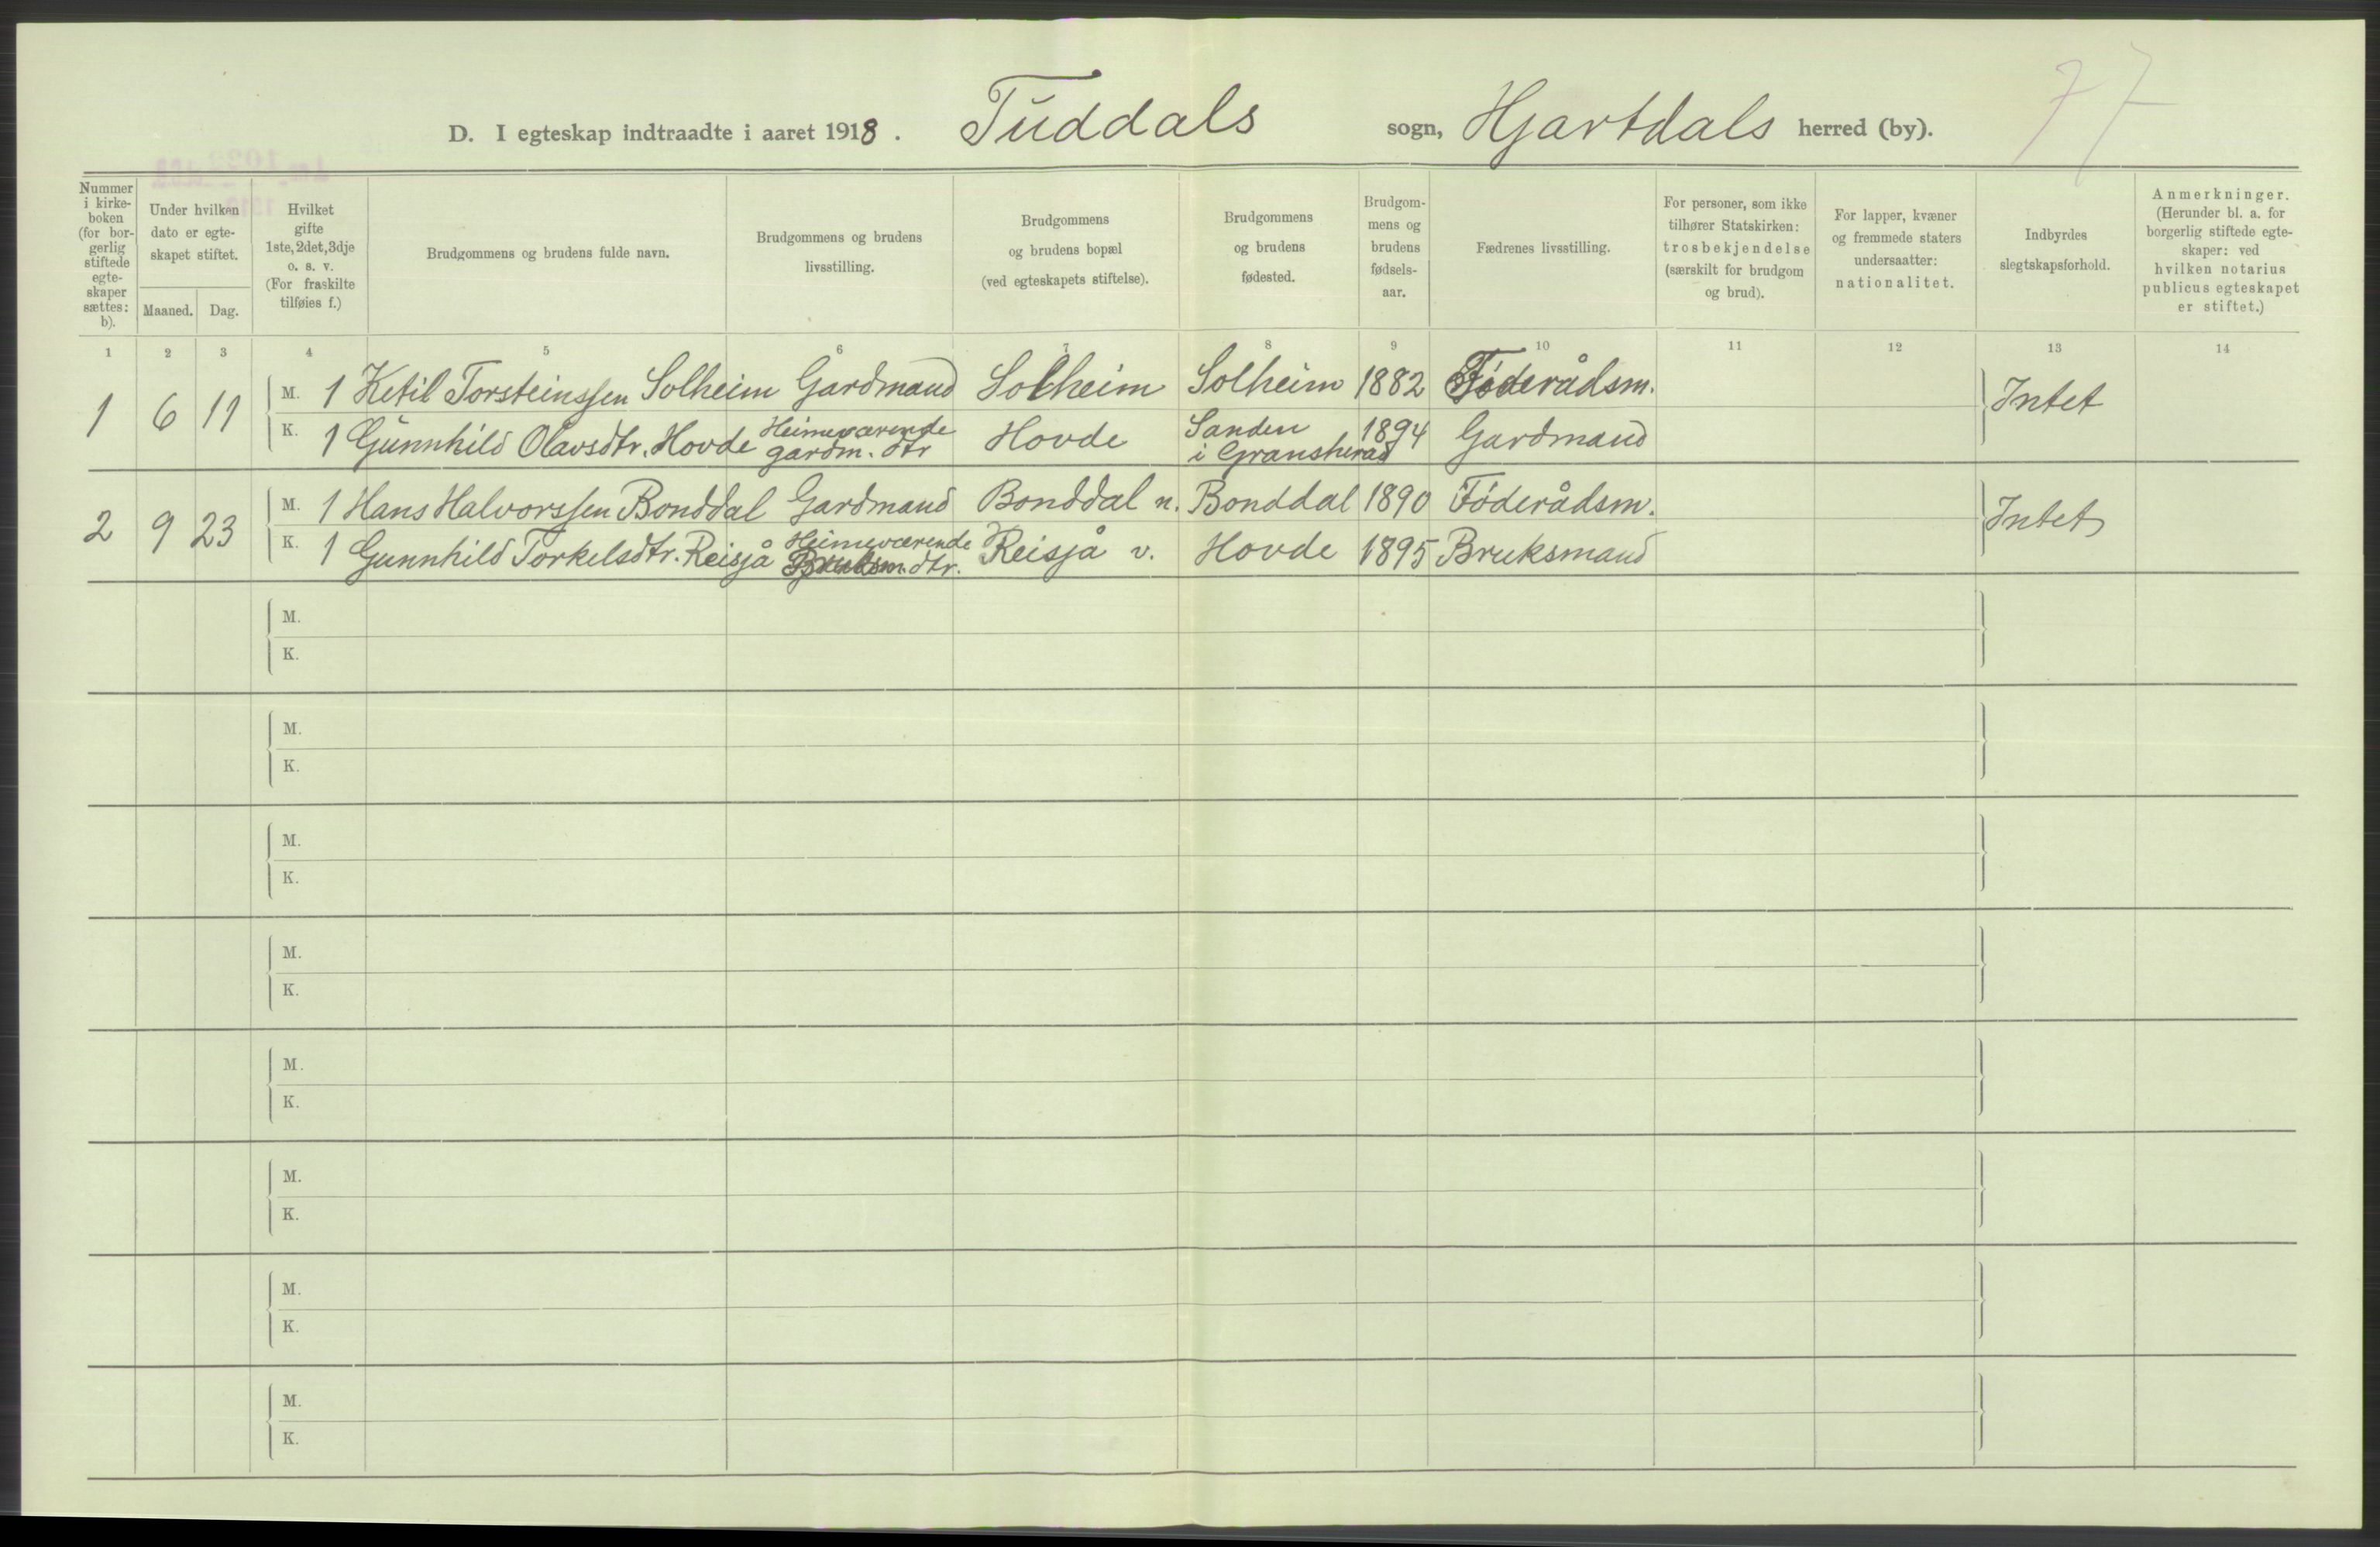 D. I egteskap indtraadte i aaret 1918. Tuddals sogn, Hjartdals herred (by). 77
Nummer i kirke-boken (for bor-gerlig stiftede egte-skaper sættes: b).
Under hvilken dato er egte-skapet stiftet.
Maaned. Dag.
Hvilket gifte 1ste, 2det, 3dje o. s. v. (For fraskilte tilføies f.)
Brudgommens og brudens fulde navn.
Brudgommens og brudens livsstilling.
Brudgommens og brudens bopæl (ved egteskapets stiftelse).
Brudgommens og brudens fødested.
Brudgom-mens og brudens fødsels-aar.
Fædrenes livsstilling.
For personer, som ikke tilhører Statskirken: trosbekjendelse (særskilt for brudgom og brud).
For lapper, kvæner og fremmede staters undersaatter: nationalitet.
Indbyrdes slegtskapsforhold.
Anmerkninger. (Herunder bl. a. for borgerlig stiftede egte-skaper: ved hvilken notarius publicus egteskapet er stiftet.)
1 2 3 4 5 6 7 8 9 10 11 12 13 14
1 6 11 M. 1 Ketil Torsteinssen Solheim Gardmand Solheim Solheim 1882 Føderådsm. Intet
K. 1 Gunnhild Olavsdtr. Hovde Heimeværende gardm. dtr Hovde Sanden i Gransherad 1894 Gardmand
2 9 23 M. 1 Hans Halvorssen Bonddal Gardmand Bonddal n. Bonddal 1890 Føderådsm. Intet
K. 1 Gunnhild Torkelsdtr. Reisjå Heimeværende Bruksm. dtr. Reisjå v. Hovde 1895 Bruksmand
M.
K.
M.
K.
M.
K.
M.
K.
M.
K.
M.
K.
M.
K.
M.
K.